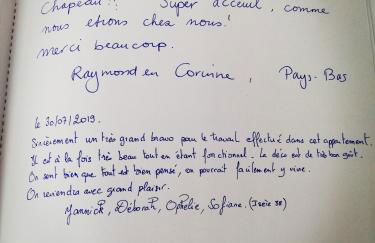 Chapeau!! Super acceuil, comme
nous etions chez nous!
merci beaucoup.
Raymond en Corinne, Pays-Bas
le 30/07/2019.
Sincèrement un très grand bravo pour le travail effectué dans cet appartement.
Il est à la fois très beau tout en étant fonctionnel. La déco est de très bon goût.
On sent bien que tout est bien pensé, on pourrait facilement y vivre.
On reviendra avec grand plaisir.
Yannick, Déborah, Ophélie, Sofiane. (Isère 38)